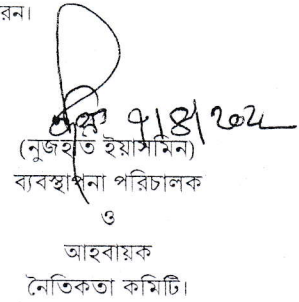 রেন।
৭/৪/২০২
(নুজহাত ইয়াসমিন)
ব্যবস্থাপনা পরিচালক
ও
আহবায়ক
নৈতিকতা কমিটি।